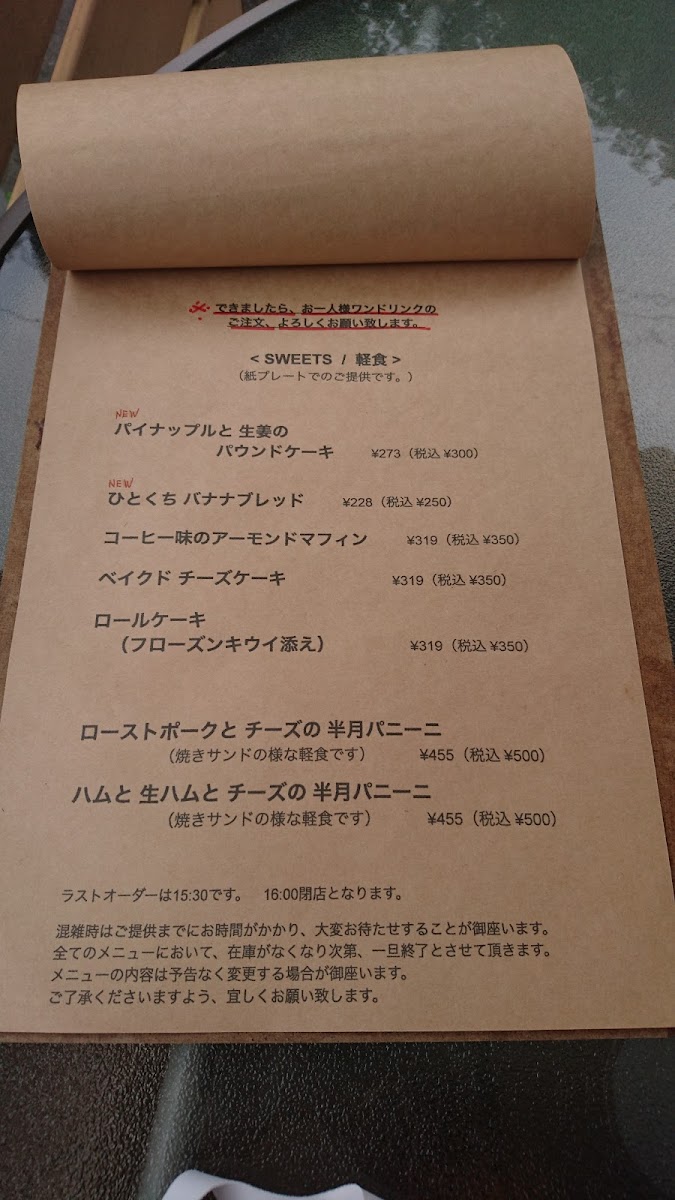 ※ できましたら、お一人様ワンドリンクの
ご注文、よろしくお願い致します。
< SWEETS / 軽食 >
（紙プレートでのご提供です。）
NEW
パイナップルと 生姜の
パウンドケーキ ¥273（税込 ¥300）
NEW
ひとくち バナナブレッド ¥228（税込 ¥250）
コーヒー味のアーモンドマフィン ¥319（税込 ¥350）
ベイクド チーズケーキ ¥319（税込 ¥350）
ロールケーキ
（フローズンキウイ添え） ¥319（税込 ¥350）
ローストポークと チーズの 半月パニーニ
（焼きサンドの様な軽食です） ¥455（税込 ¥500）
ハムと 生ハムと チーズの 半月パニーニ
（焼きサンドの様な軽食です） ¥455（税込 ¥500）
ラストオーダーは15:30です。 16:00閉店となります。
混雑時はご提供までにお時間がかかり、大変お待たせすることが御座います。
全てのメニューにおいて、在庫がなくなり次第、一旦終了とさせて頂きます。
メニューの内容は予告なく変更する場合が御座います。
ご了承くださいますよう、宜しくお願い致します。